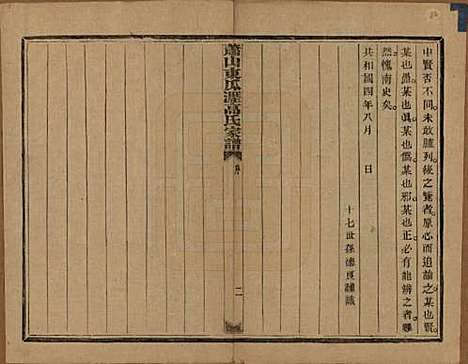 中賢否不同未敢臚列後之覽者原心而追論之某也賢
某也愚某也真某也偽某也邪某也正必有能辨之者尋
然愧南史矣
共和國四年八月　日
十七世孫德
謹識
蕭山東瓜瀝高氏家譜
序
二